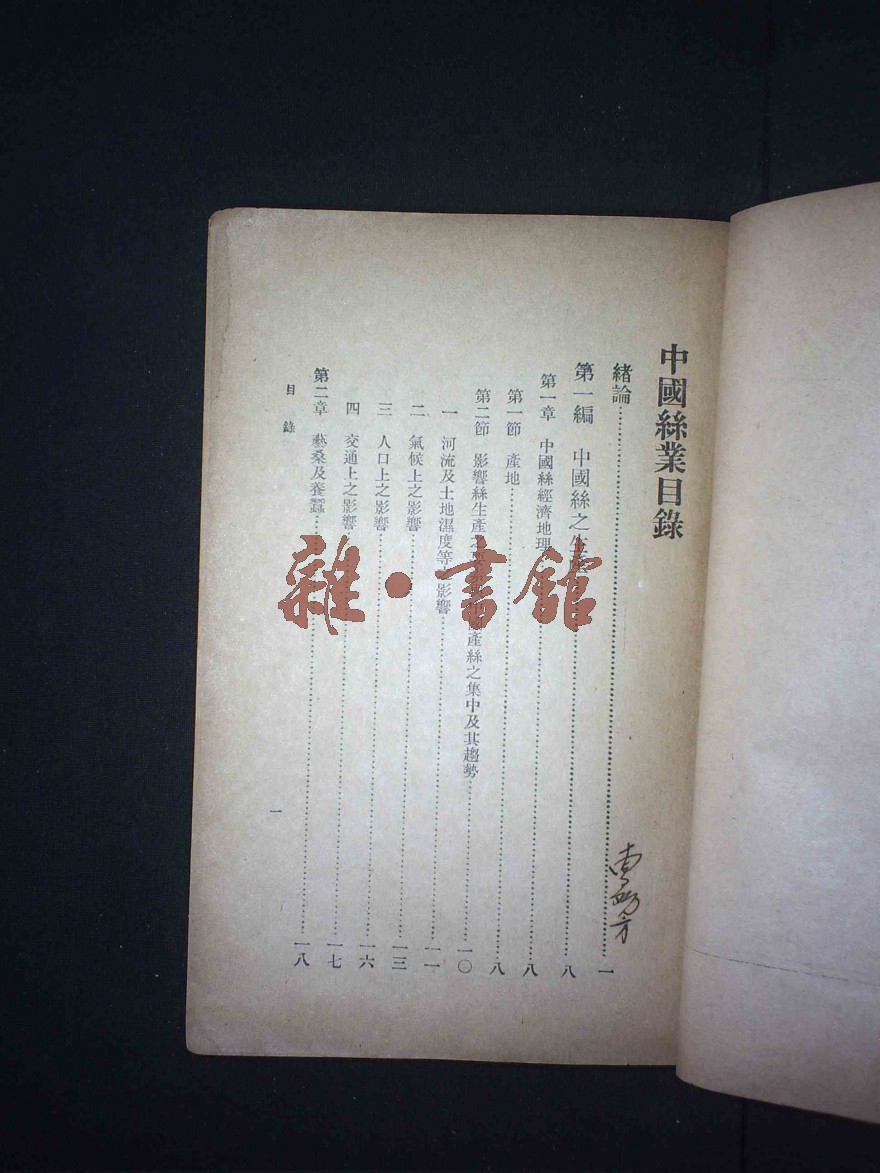 中國絲業目錄
緒論……一
第一編 中國絲之生產……八
第一章 中國絲經濟地理……八
第一節 產地……八
第二節 影響絲生產之 產絲之集中及其趨勢……一〇
一 河流及土地濕度等 影響……一一
二 氣候上之影響……一三
三 人口上之影響……一六
四 交通上之影響……一七
第二章 藝桑及養蠶……一八
目錄
一
雜·書館